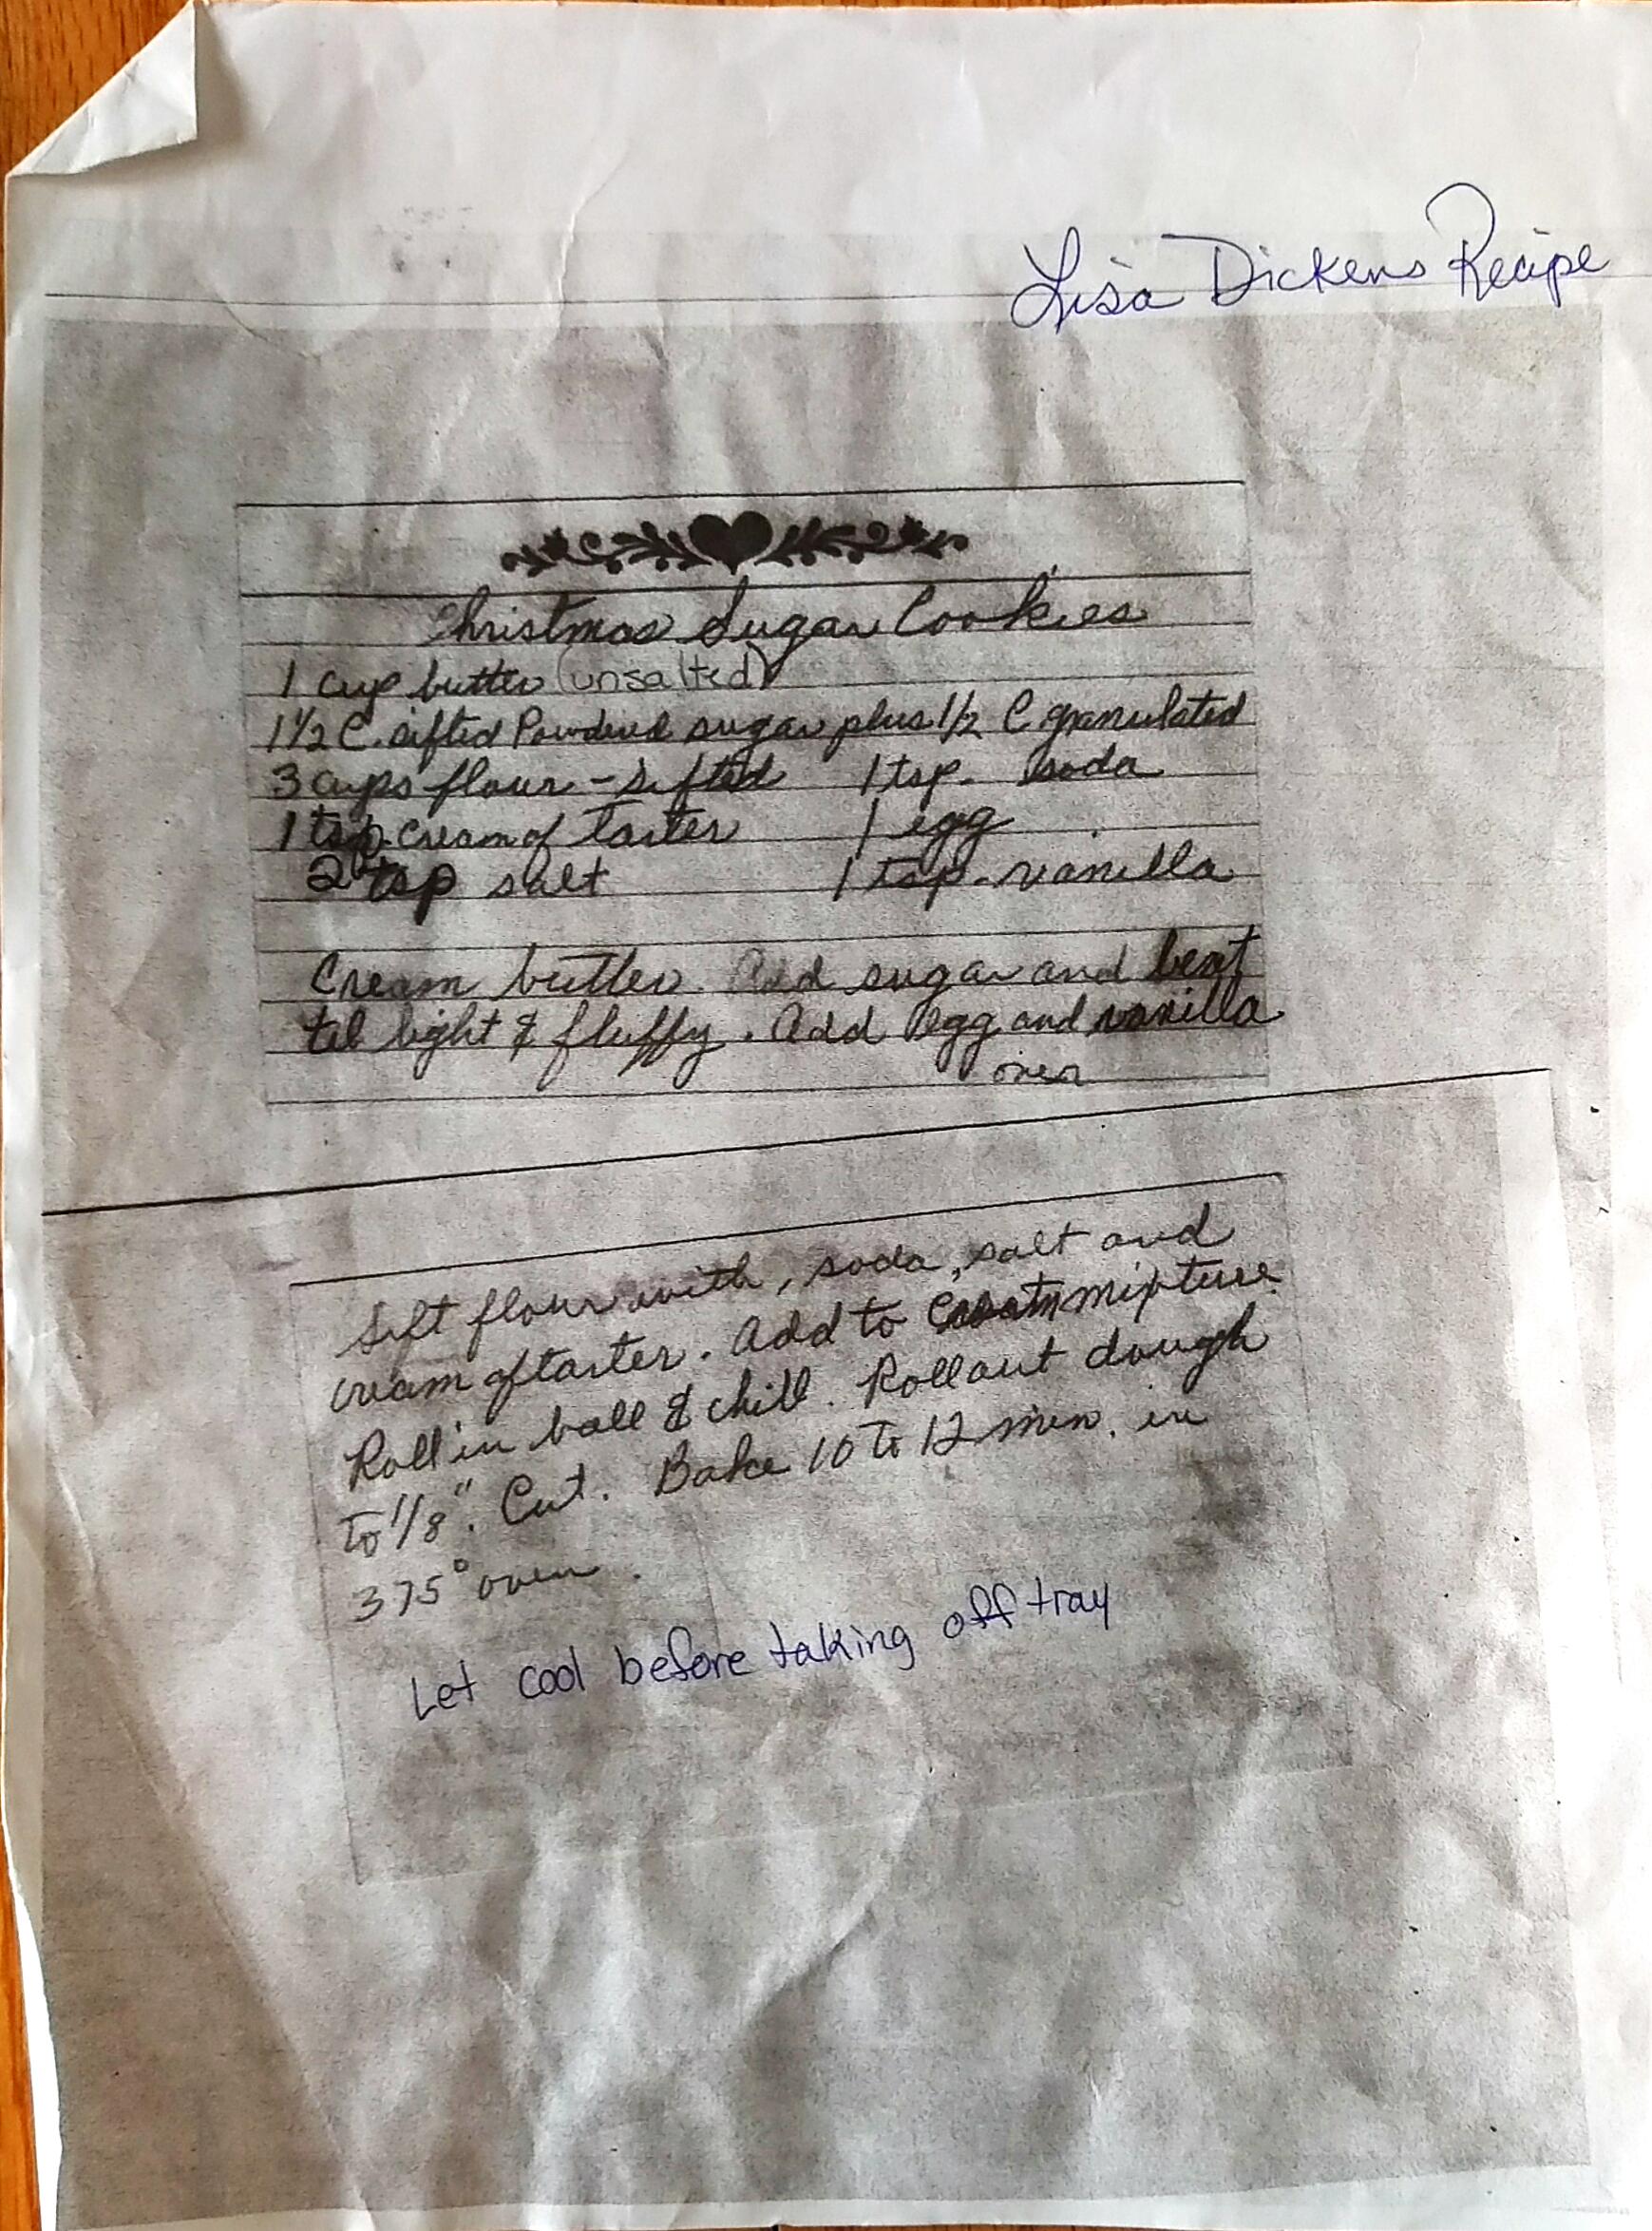 Lisa Dickens Recipe
Christmas Sugar Cookies
1 cup butter (unsalted)
1 1/2 C. sifted Powdered sugar plus 1/2 C granulated
3 cups flour - sifted 1 tsp. soda
1 tsp. cream of tarter 1 egg
2 tsp salt 1 tsp. vanilla
Cream butter. Add sugar and beat
til light & fluffy. Add egg and vanilla
over
Sift flour with, soda, salt and
cream of tarter. Add to mixture.
Roll in ball & chill. Roll out dough
to 1/8". Cut. Bake 10 to 12 min. in
375° oven.
Let cool before taking off tray